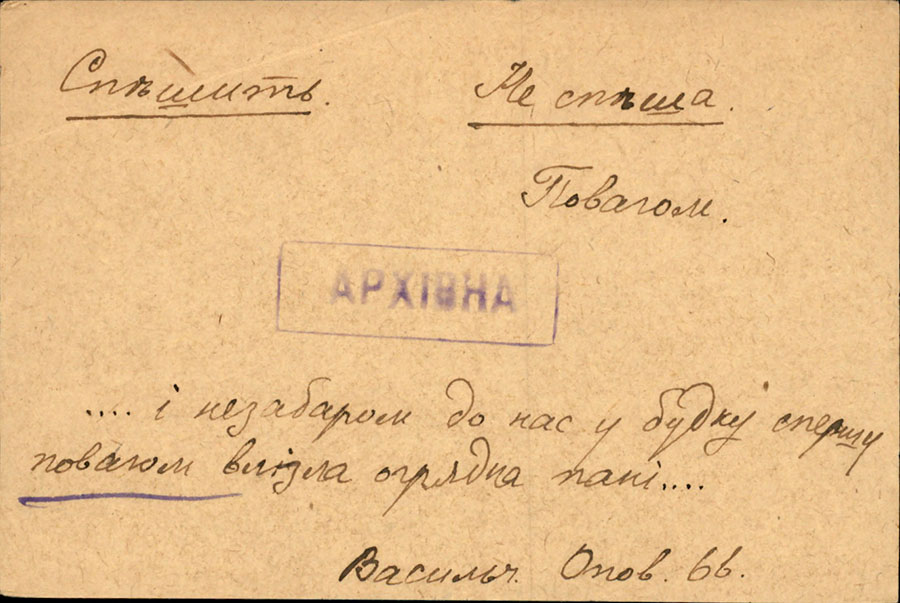 Спѣшить. Не спѣша.
Повагом.
АРХІВНА
.... і незабаром до нас у будку спершу
повагом влізла огрядна пані....
Васильч. Опов. 66.